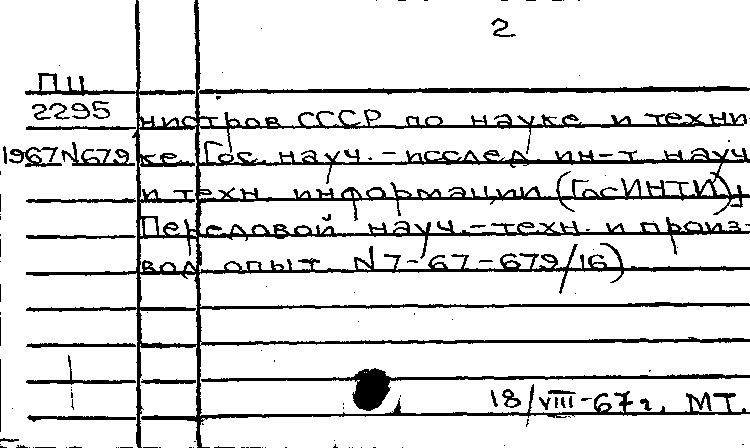 2
ПЦ
2295 нистров СССР по науке и техни-
1967 N679 ке. Гос. науч.-исслед. ин-т науч.
и техн. информации (ГосИНТИ).
Передовой науч.-техн. и произ-
вод. опыт. N7-67-679/16).
18/VIII-67г. МТ.